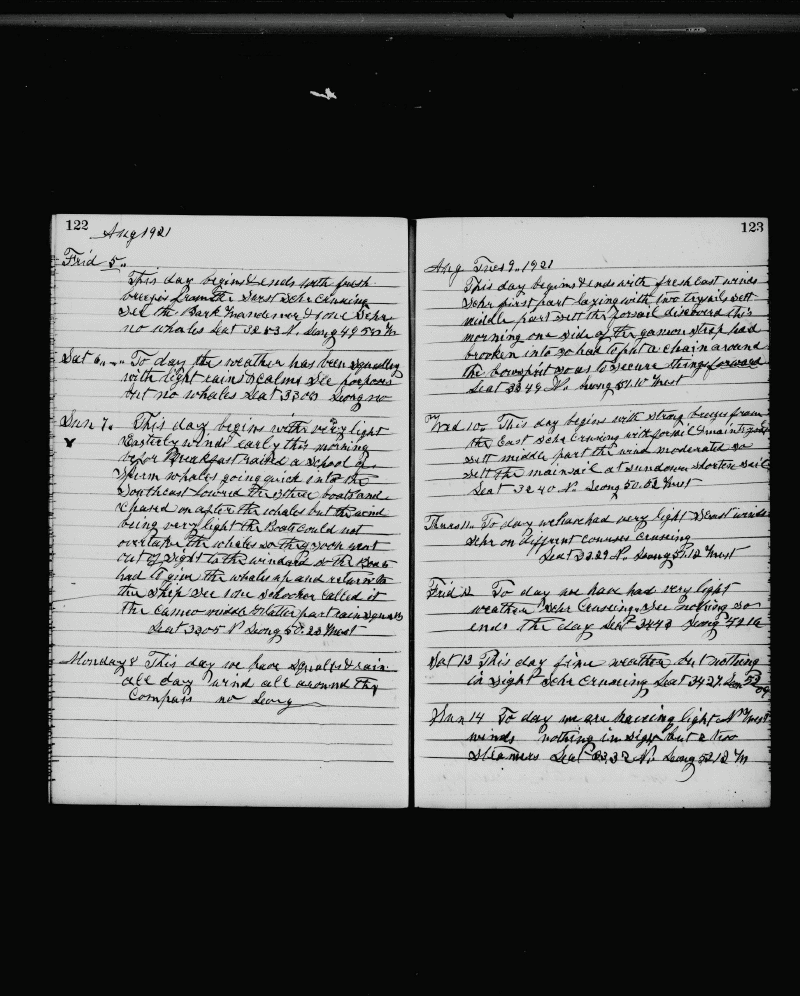 122
Aug 1921
Frid 5.
This day begins & ends with fresh
breezes from the Schr Cruising
See the Bark Wanderer & one Schr
no whales Lat 32 53 N. Long 49 50 W
Sat 6. To day the weather has been squally
with light rains & calms See porpoises
but no whales Lat 33 00 Long no
Sun 7. This day begins with very light
Easterly winds early this morning
befor Breakfast raised a School of
Sperm whales going quick into the
Southeast lowerd the three boats and
chased on after the whales but the wind
being very light the Boats could not
overtake the whales so they soon went
out of sight to the windard so the Boats
had to give the whales up and return to
the Ship See one Schooner Called it
the Cameo middle & latter part rain squalls
Lat 33 05 N Long 50.23 West
Monday 8 This day we have Squalls & rain
all day wind all around the
Compass no Long
123
Aug Tues 9. 1921
This day begins & ends with fresh East winds
Schr first part laying with two trysails sett
middle part sett the forsail discoverd this
morning one side of the gamon strap had
brooken into so had to put a chain around
the bowsprit so as to secure things forward
Lat 33 49 N. Long 51.10 West
Wed 10. This day begins with strong breezes from
the East Schr Crusing with forsail & maintrysail
sett middle part the wind moderated so
sett the mainsail at sundown shorten sail
Lat 32 40 N. Long 50.52 West
Thurs 11. To day we have had very light S East winds
Schr on different courses crusing
Lat 33.29 N. Long 51.12 West
Frid 12 To day we have had very light
weather Schr Crusing. See nothing so
ends the day Lat 34 43 Long 49 16
Sat 13 This day fine weather but nothing
in sight Schr Crusing Lat 34 27. Lon 52 09
Sun 14 To day we are having light N West
winds nothing in sight but a two
steamers Lat 33.32 N. Long 52.12 W